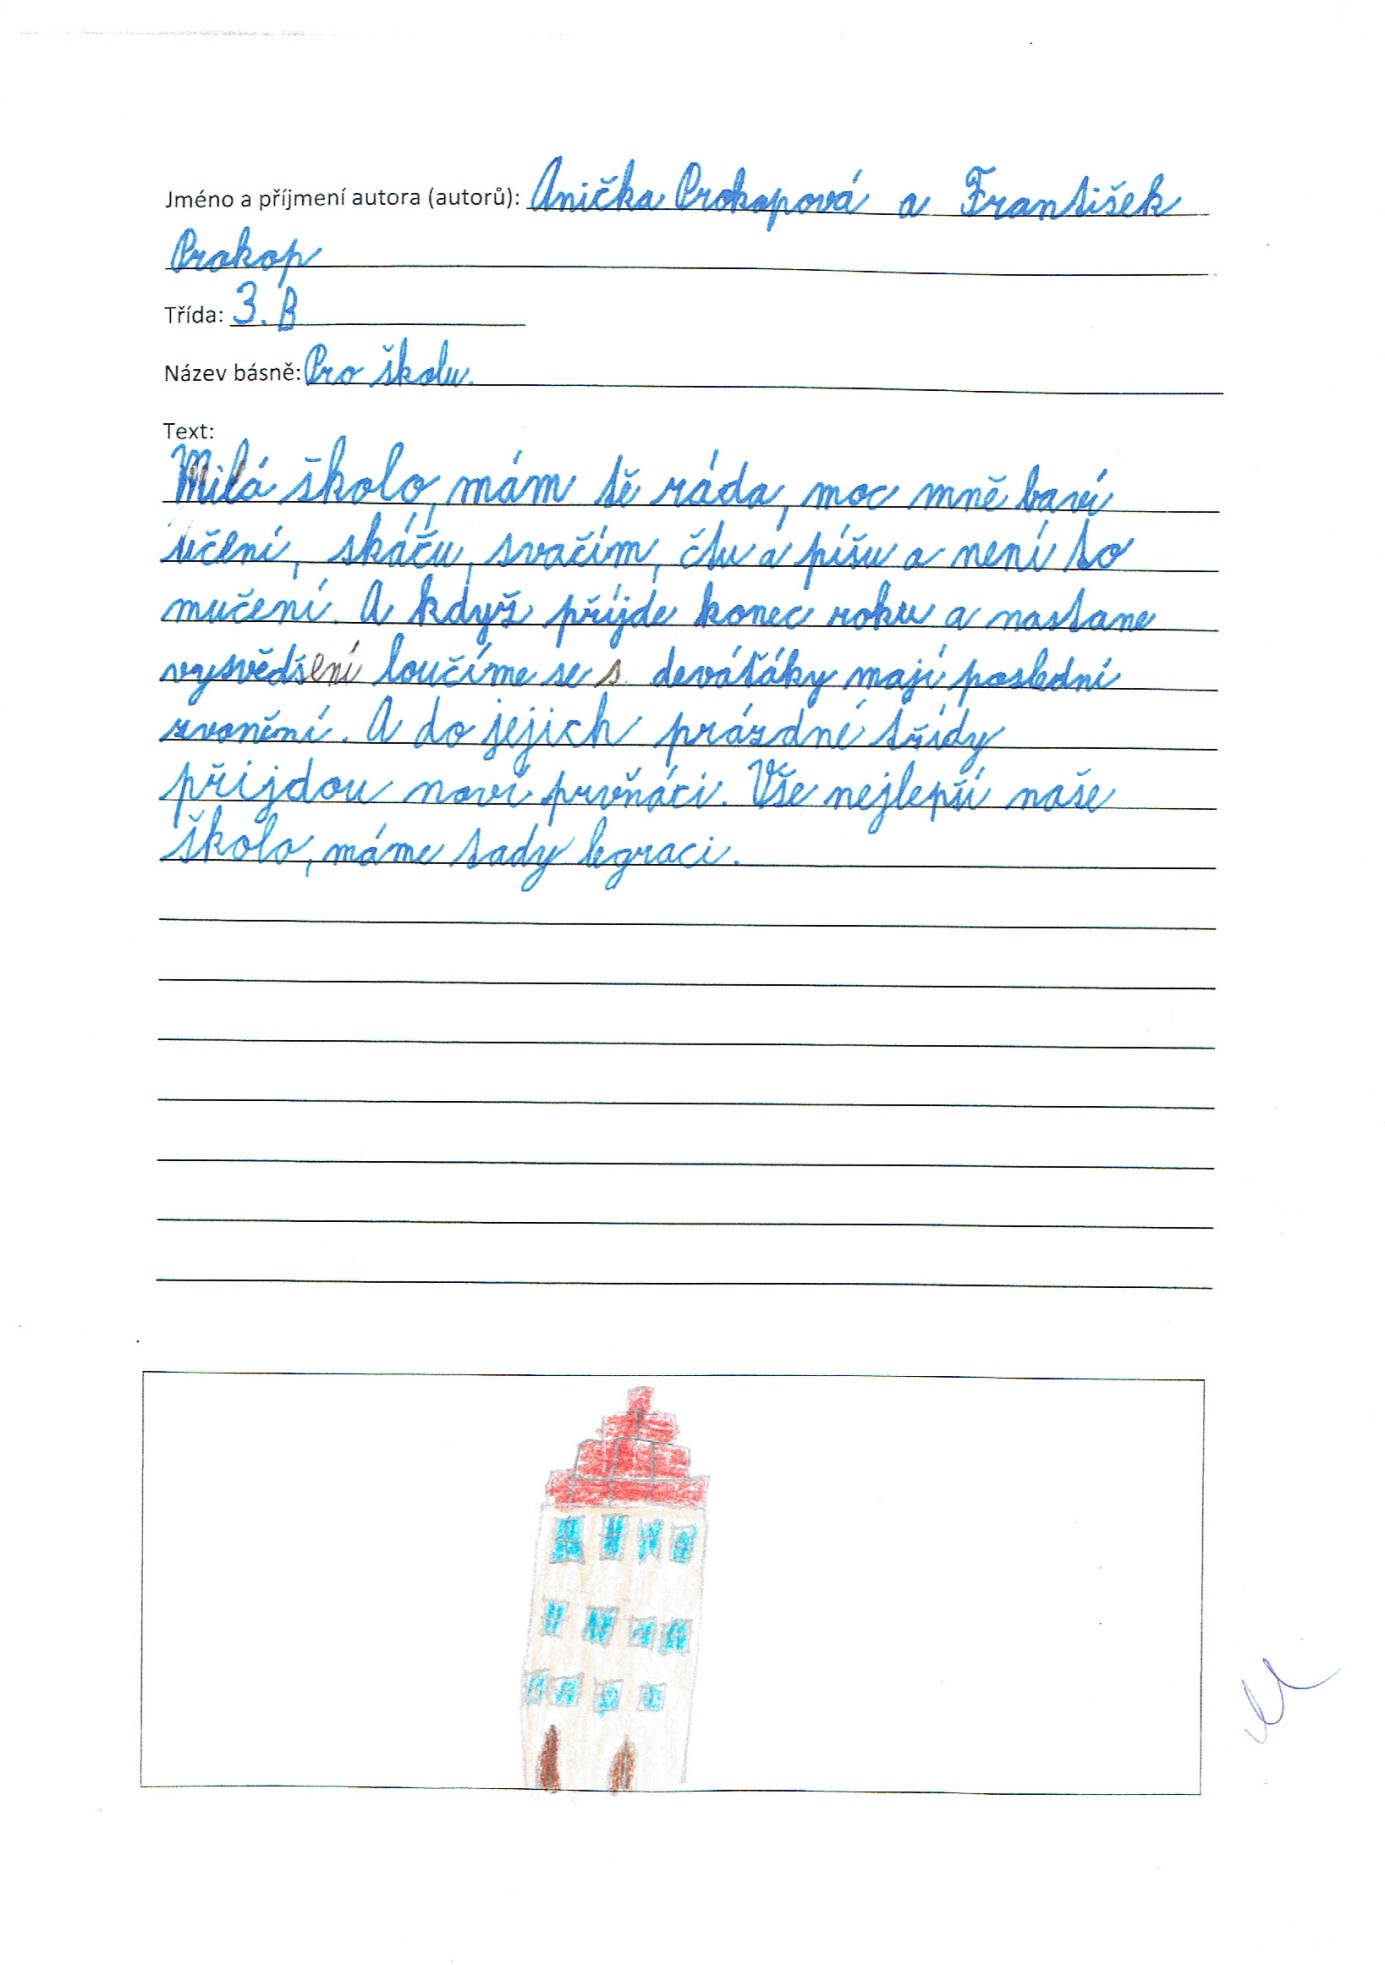 Jméno a příjmení autora (autorů): Anička Prokopová a František
Prokop
Třída: 3. B
Název básně: Pro školu.
Text:
Milá školo, mám tě ráda, moc mně baví
učení, skáču, svačím, čtu a píšu a není to
mučení. A když příjde konec roku a nastane
vysvědšení loučíme se s deváťáky mají poslední
zvonění. A do jejich prázdné třídy
přijdou noví prvňáci. Vše nejlepší naše
školo, máme tady legraci.